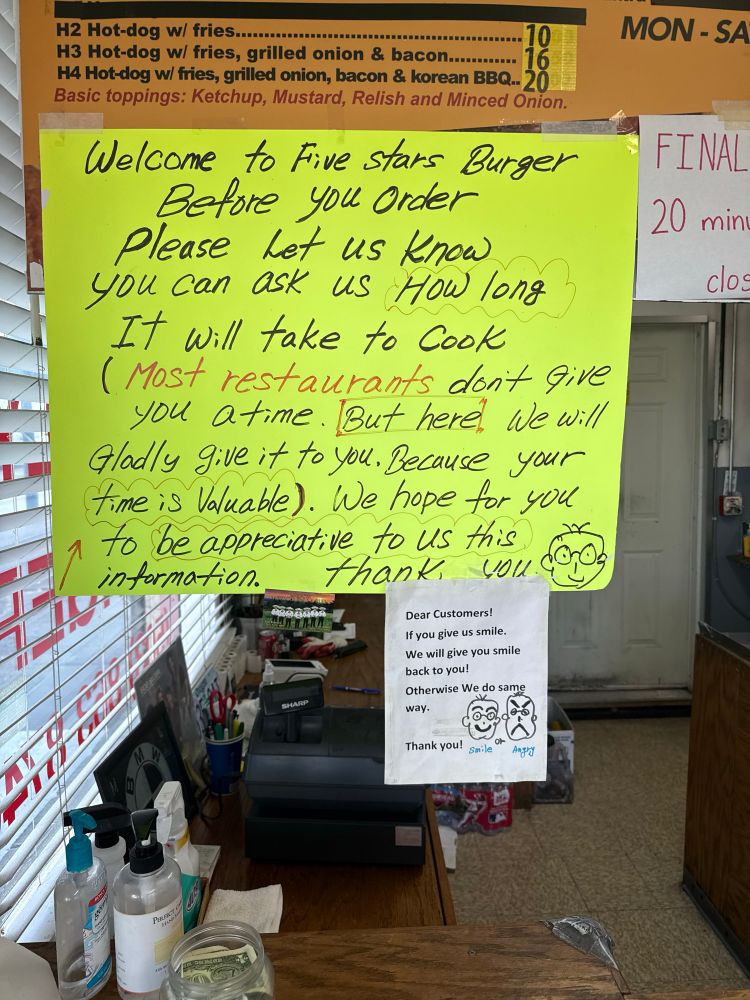 H2 Hot-dog w/ fries............ 10
H3 Hot-dog w/ fries, grilled onion & bacon............ 16
H4 Hot-dog w/ fries, grilled onion, bacon & korean BBQ.. 20
Basic toppings: Ketchup, Mustard, Relish and Minced Onion.
MON - SA
Welcome to Five stars Burger
Before you Order
Please Let us Know
you can ask us How long
It will take to Cook
(Most restaurants don't give
you a time. But here We will
Gladly give it to you. Because your
time is Valuable). We hope for you
to be appreciative to us this
information. Thank you
FINAL
20 minu
clos
Dear Customers!
If you give us smile.
We will give you smile
back to you!
Otherwise We do same
way.
Thank you!
Smile or Angry
SHARP
BMW